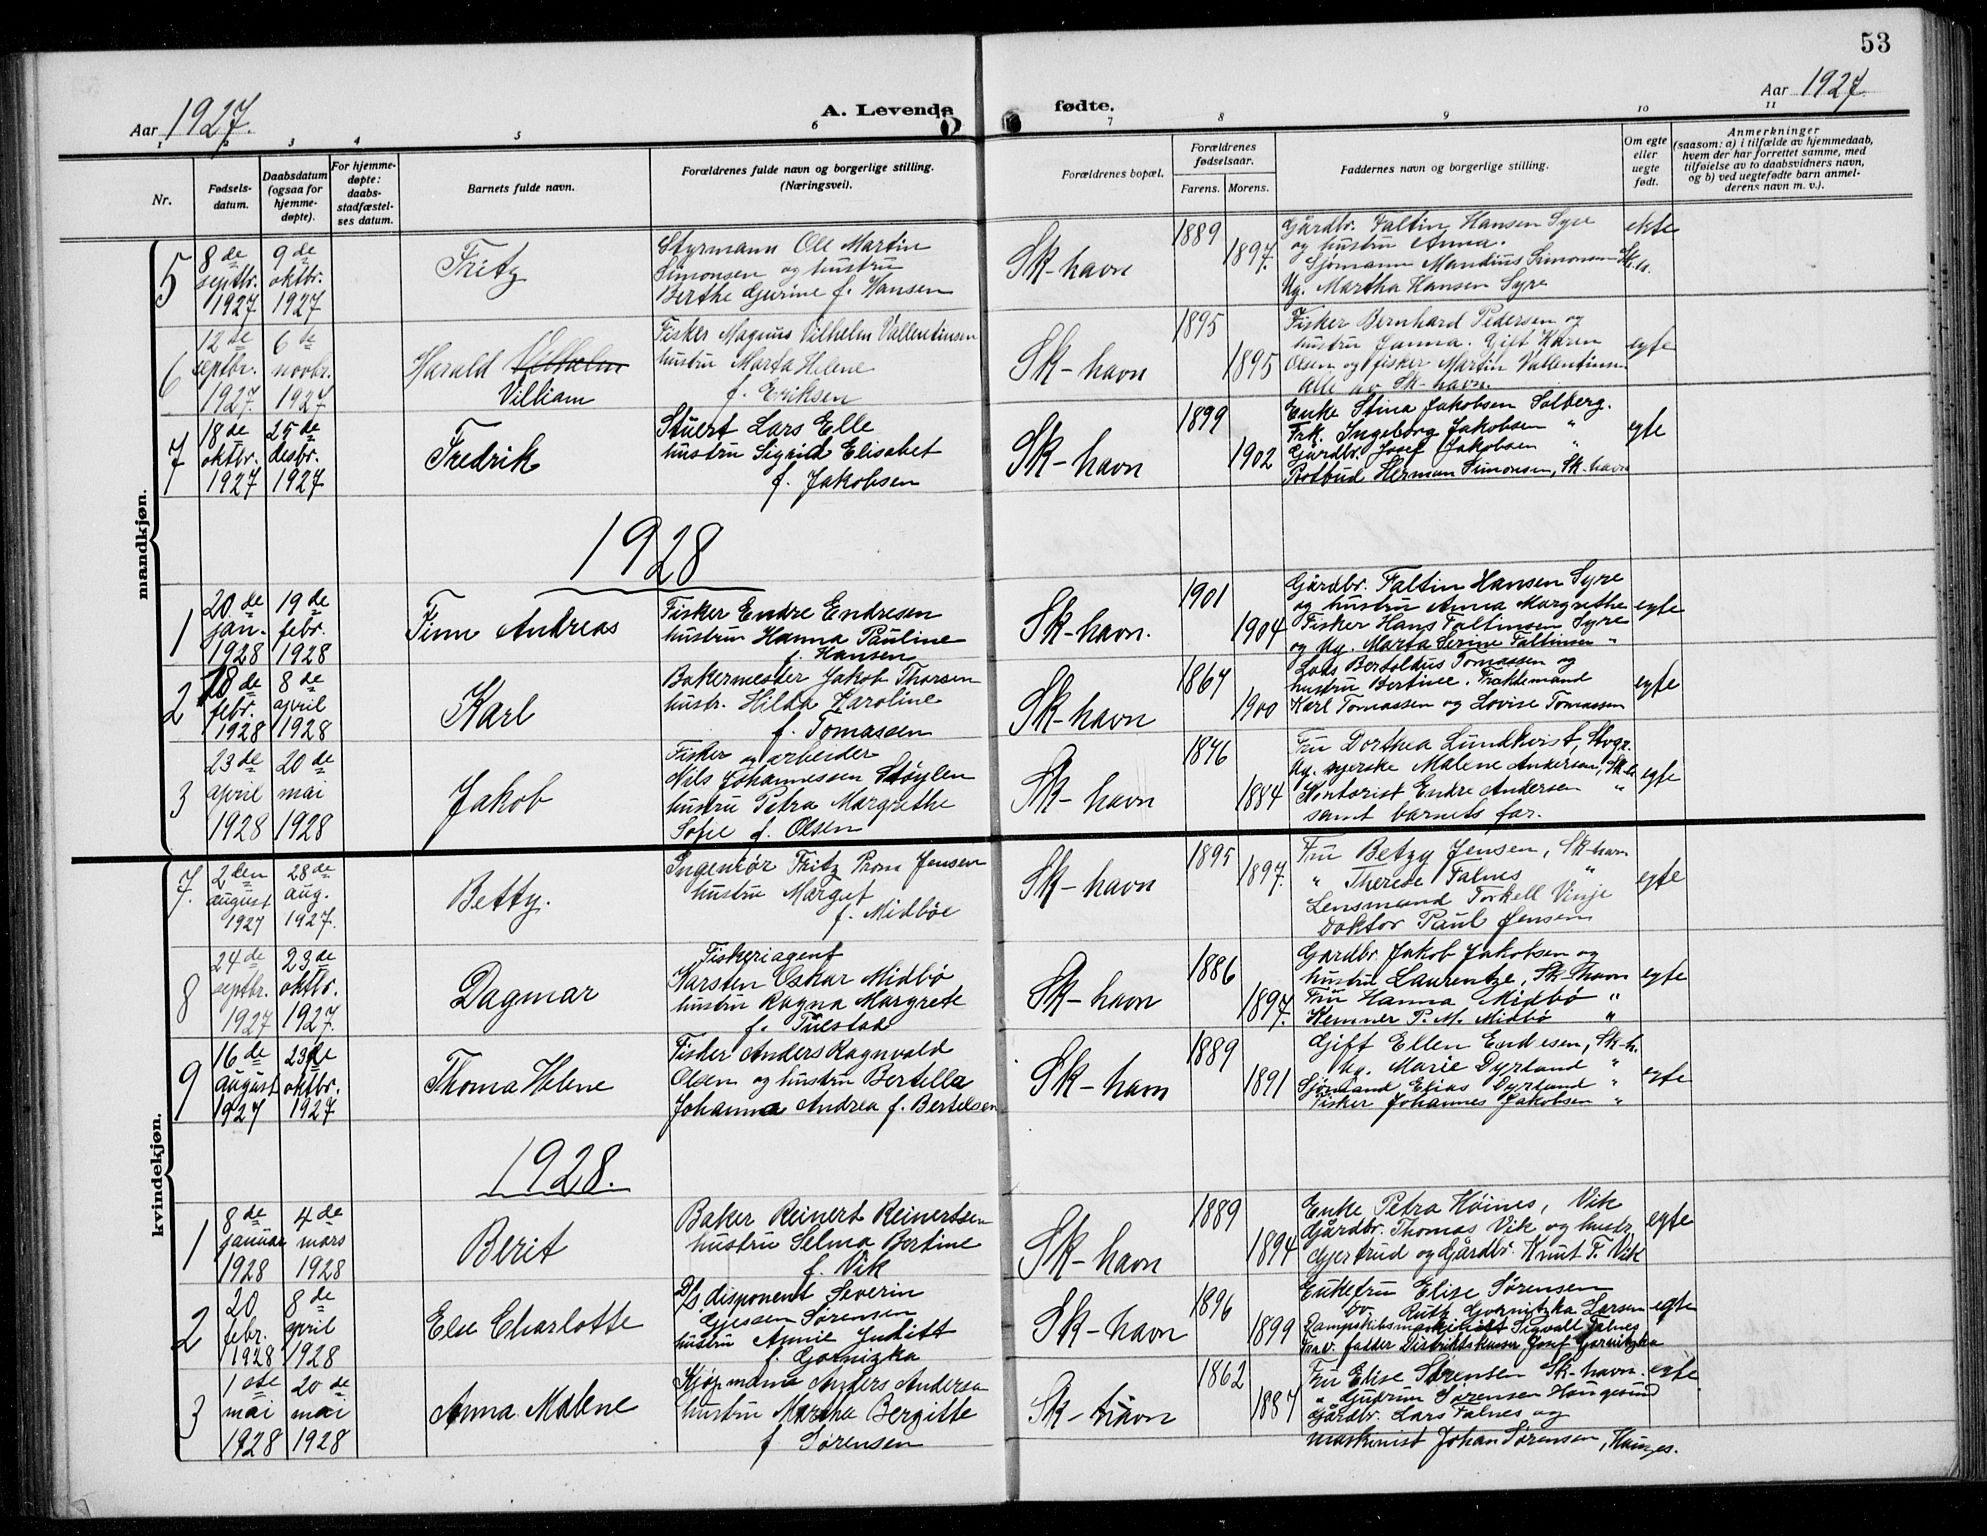 53
Aar 1927.
A. Levende fødte.
Aar 1927.
1 2 3 4 5 6 7 8 9 10 11
Nr.
Fødsels-
datum.
Daabsdatum
(ogsaa for
hjemme-
døpte).
For hjemme-
døpte:
daabs-
stadfæstel-
ses datum.
Barnets fulde navn.
Forældrenes fulde navn og borgerlige stilling.
(Næringsvei).
Forældrenes bopæl.
Forældrenes
fødselsaar.
Farens. Morens.
Faddernes navn og borgerlige stilling.
Om egte
eller
uegte
født.
Anmerkninger
(saasom: a) i tilfælde av hjemmedaab,
hvem der har forrettet samme, med
tilføielse av to daabsvidners navn,
og b) ved uegtefødte barn anmel-
derens navn m. v.).
mandkjøn.
5
8 de
septbr.
1927
9 de
oktbr.
1927
Fritz
Styrmann Ole Martin
Simonsen og hustru
Berthe Gurine f. Hansen
Sk-havn
1889
1897.
Gårdbr. Faltin Hansen Syre
og hustru Anna.
Sjømann Mandius Simonsen Sk.h.
Ug. Martha Hansen Syre
ekte
6
12 de
septbr.
1927.
6 de
novbr.
1927
Harald Vilhelm
Villiam
Fisker Magnus Vilhelm Vallentinsen
hustru Marta Helene
f. Eriksen
Sk-havn
1895
1895
Fisker Bernhard Pedersen og
hustru Janna. Gift Karen
Olsen og fisker Martin Vallentinsen
Alle av Sk-havn.
egte
7
18 de
oktbr.
1927
25 de
desbr.
1927
Fredrik
Stuert Lars Elle
hustru Sigrid Elisabet
f. Jakobsen
Sk-havn
1899
1902
Enke Stina Jakobsen Solberg.
Frk. Ingeborg Jakobsen "
Gårdbr. Josef Jakobsen "
Postbud Herman Simonsen, Sk-havn
egte
1928
1
20 de
jan.
1928
19 de
febr.
1928
Finn Andreas
Fisker Endre Endresen
hustru Hanna Pauline
f. Hansen
Sk-havn.
1901
1904
Gårdbr. Faltin Hansen Syre
og hustru Anna Margrethe
Fisker Hans Faltinsen Syre
og Ug. Marta Serine Faltinsen "
egte
2
18 de
febr.
1928
8 de
april
1928
Karl
Bakermester Jakob Thorsen
hustr. Hilda Karoline
f. Tomassen
Sk-havn
1867
1900
Lods Bertoldus Tomassen og
hustru Bertine.
Karl Tomassen og Lovise Tomassen
egte
3
23 de
april
1928
20 de
mai
1928
Jakob
Fisker og arbeider
Nils Johannessen Støylen
hustru Petra Margrethe
Sofie f. Olsen
Sk-havn
1876
1884
Fru Dorthea Lundkvist,
Ug. syerske Malene Andersen, Sk-h.
Kontorist Endre Andersen "
samt barnets far.
egte
kvindekjøn.
7.
2 den
august
1927
28 de
aug.
1927.
Betty.
Ingeniør Fritz Prom Jensen
hustru Margit
f. Midbøe
Sk-havn
1895
1897.
Fru Betzy Jensen, Sk-havn
" Therese Falnes "
Lensmand Torkell Vinje
Doktor Paul Jensen
egte
8
24 de
septbr.
1927
23 de
oktbr.
1927.
Dagmar
Fiskeriagent
Karsten Oskar Midbø
hustru Ragna Margrete
f. Tuestad
Sk-havn
1886
1897.
Gardbr. Jakob Jakobsen og
hustru Laurentze, Sk-havn
Fru Hanna Midbø "
Kemner P. M. Midbø "
egte
9
16 de
august
1927
23 de
oktbr.
1927.
Thoma Helene
Fisker Anders Ragnvald
Olsen og hustru Bertella
Johanna Andrea f. Bertelsen
Sk-havn
1889
1891
Gift Ellen Endresen, Sk-h.
Ug. Marie Dyrland "
Sjømand Elias Dyrland "
Fisker Johannes Jakobsen "
egte
1928.
1
8 de
januar
1928
4 de
mars
1928
Berit
Baker Reinert Reinertsen
hustru Selma Bertine
f. Vik
Sk-havn
1889
1894
Enke Petra Høines, Vik
Gårdbr. Thomas Vik og hustr.
Gjertrud og Gårdbr. Knut T. Vik
egte
2
20
febr.
1928
8 de
april
1928
Else Charlotte
D/s disponent Severin
Gjessen Sørensen
hustru Annie Juditt
f. Gornizka
Sk-havn
1896
1899
Enkefru Elise Sørensen
Do Ruth Gornitzka Larsen
Dampskibsmaskinist Sigvall Falnes
fadder Distriktskasser Josef Gornitzka
egte
3
1 ste
mai
1928
20 de
mai
1928
Anna Malene
Kjøpmann Anders Andersen
hustru Martha Bergitte
f Sørensen
Sk-havn
1862
1887
Fru Elise Sørensen Sk-havn.
" Gudrun Sørensen Haugesund
Gårdbr. Lars Falnes og
maskinist Johan Sørensen, Hauges.
egte